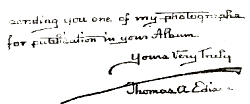 sending you one of my photographs
for publication in your Album.
Yours Very Truly
Thomas A Edis